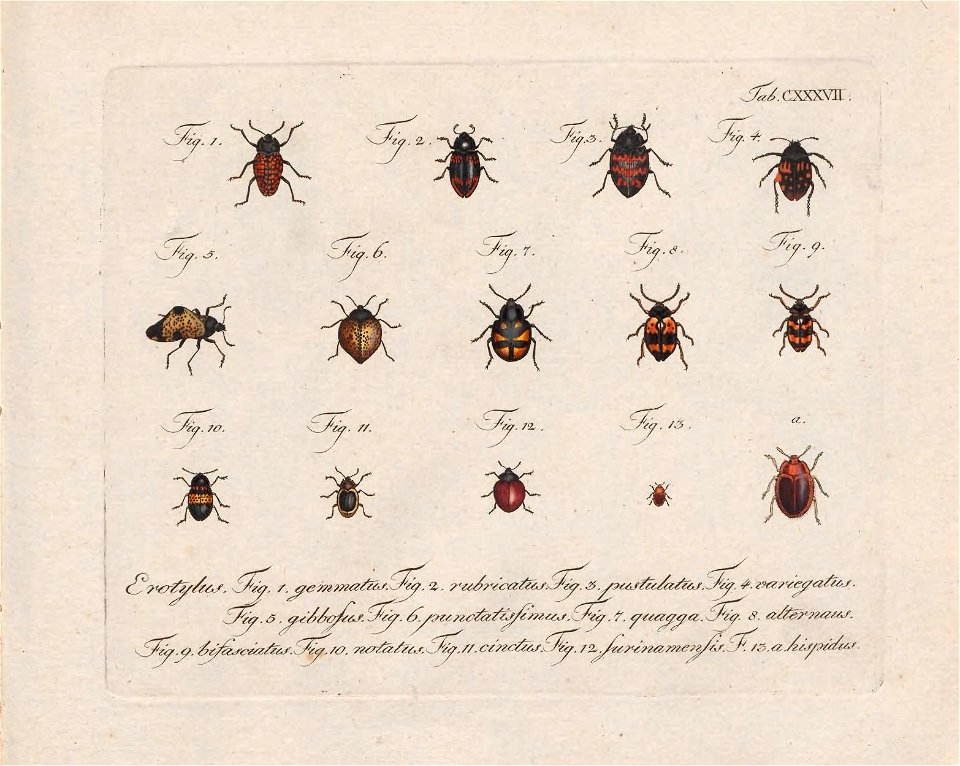 Tab. CXXXVII.
Fig. 1. Fig. 2. Fig. 3. Fig. 4.
Fig. 5. Fig. 6. Fig. 7. Fig. 8. Fig. 9.
Fig. 10. Fig. 11. Fig. 12. Fig. 13. a.
Erotylus. Fig. 1. gemmatus. Fig. 2. rubricatus. Fig. 3. pustulatus. Fig. 4. variegatus.
Fig. 5. gibboſus. Fig. 6. punctatiſſimus. Fig. 7. quagga. Fig. 8. alternaus.
Fig. 9. bifasciatus. Fig. 10. notatus. Fig. 11. cinctus. Fig. 12. ſurinamenſis. F. 13. a. hispidus.